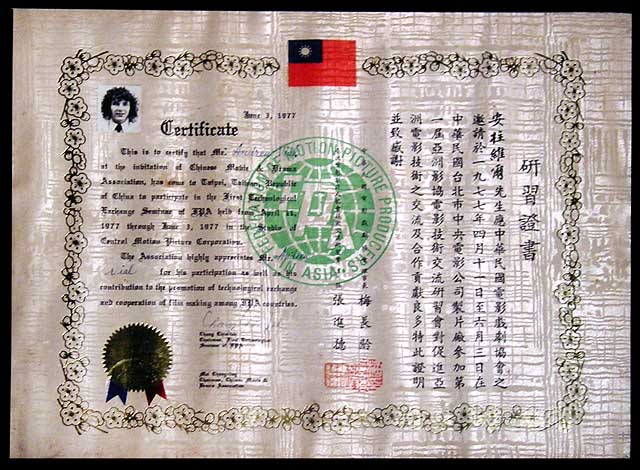 June 3, 1977
Certificate
This is to certify that Mr. Andrew
at the invitation of Chinese Movie & Drama
Association, has come to Taipei, Taiwan, Republic
of China to participate in the First Technological
Exchange Seminar of FPA held from April 11,
1977 through June 3, 1977 in the Studio of
Central Motion Picture Corporation.
The Association highly appreciates Mr.
Vial for his participation as well as his
contribution to the promotion of technological exchange
and cooperation of film making among FPA countries.
Chairman, First Technological
Seminar of FPA
Mei Changling
Chairman, Chinese Movie &
Drama Association
MOTION PICTURE PRODUCERS
ASIA
研習證書
安柱維爾先生應中華民國電影戲劇協會之
邀請於一九七七年四月十一日至六月三日在
中華民國台北市中央電影公司製片廠參加第
一屆亞洲影協電影技術交流研習會對促進亞
洲電影技術之交流及合作貢獻良多特此證明
並致感謝
梅長齡
張進德